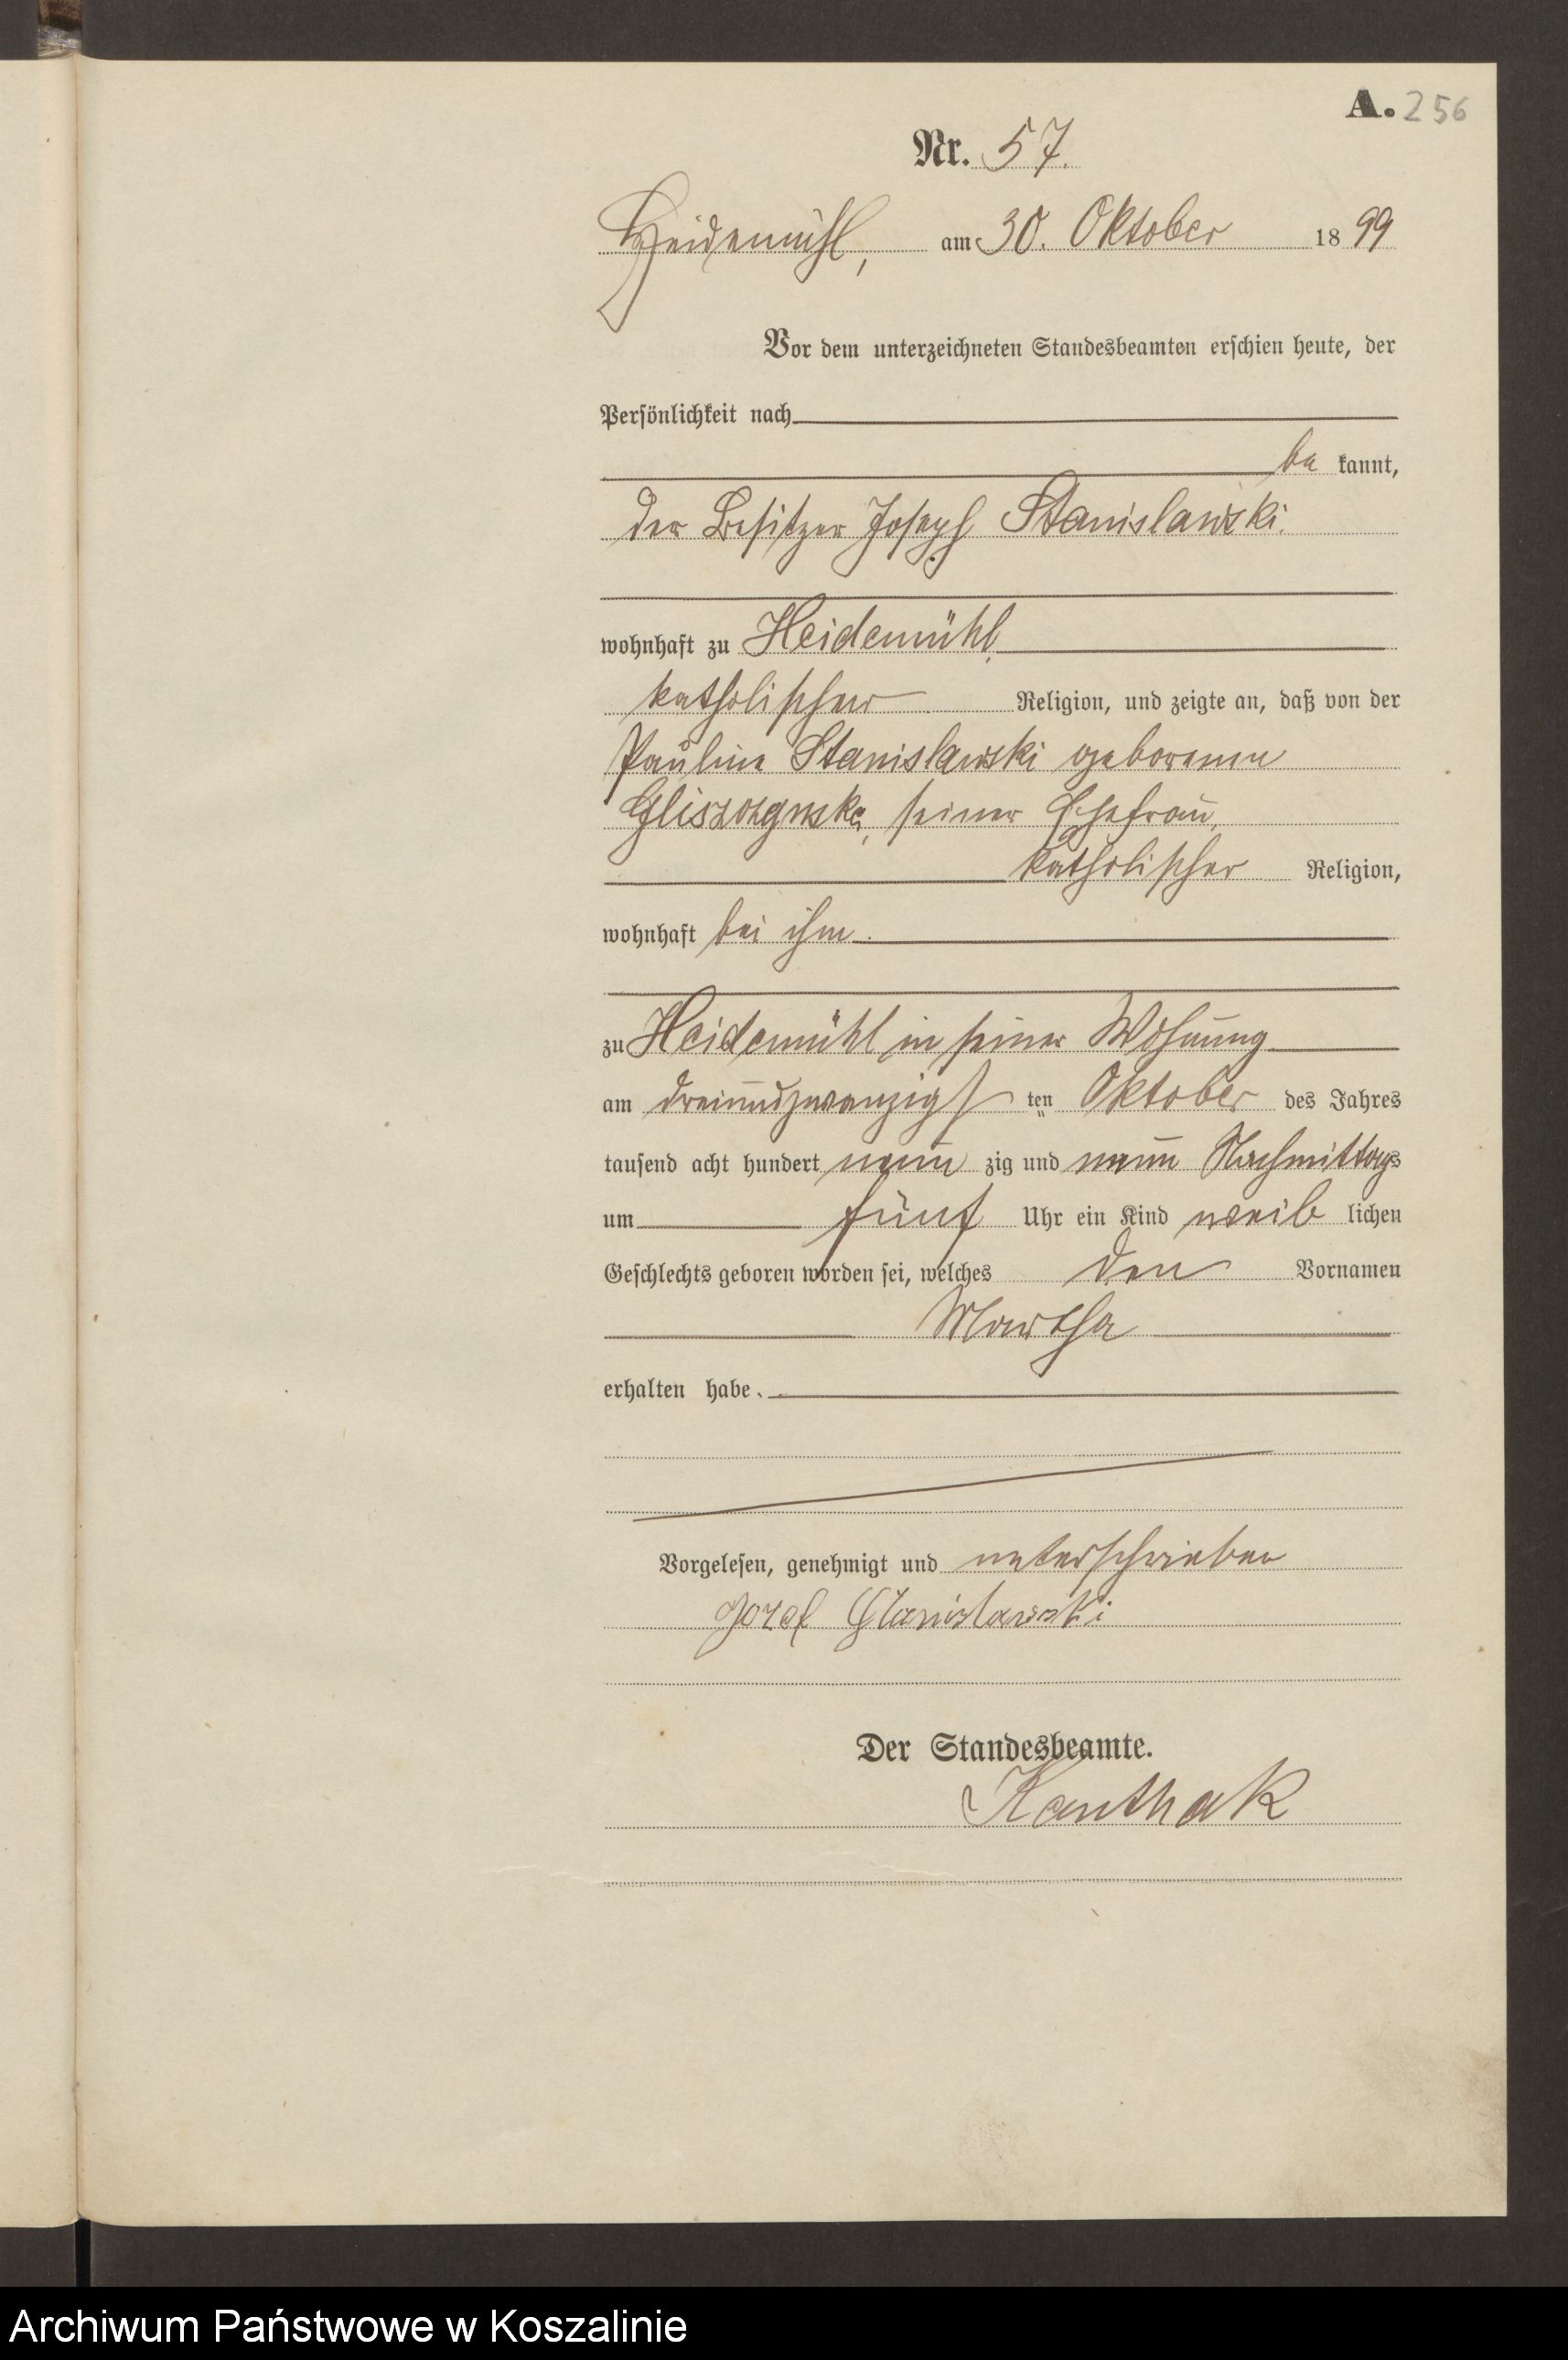 A. 256
Nr. 57.
Heidemühl, am 30. Oktober 1899
Vor dem unterzeichneten Standesbeamten erschien heute, der
Persönlichkeit nach
be kannt,
der Besitzer Joseph Stanislawski.
wohnhaft zu Heidemühl,
katholischer Religion, und zeigte an, daß von der
Pauline Stanislawski geborenen
seiner Ehefrau,
katholischer Religion,
wohnhaft bei ihm.
zu Heidemühl in seiner Wohnung
am dreiundzwanzigsten Oktober des Jahres
tausend acht hundert neun zig und neun Nachmittags
um fünf Uhr ein Kind weib lichen
Geschlechts geboren worden sei, welches den Vornamen
Martha
erhalten habe.
Vorgelesen, genehmigt und unterschrieben
Jozef Stanislawski
Der Standesbeamte.
Kanthak
Archiwum Państwowe w Koszalinie